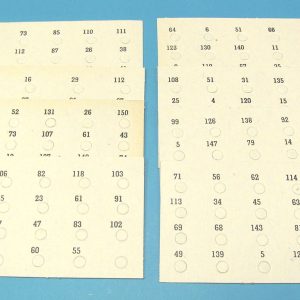 73 85 110 111
112 87 26 38
16 29 112
52 131 26 150
73 107 61 43
06 82 118 103
45 23 61 91
7 47 83 102
60 55
64 6 51 66
123 130 140 11
108 51 31 135
25 4 120 15
99 126 138 92
5 147 79 14
71 56 62 114
113 34 45
69 68 143 81
49 139 5 12